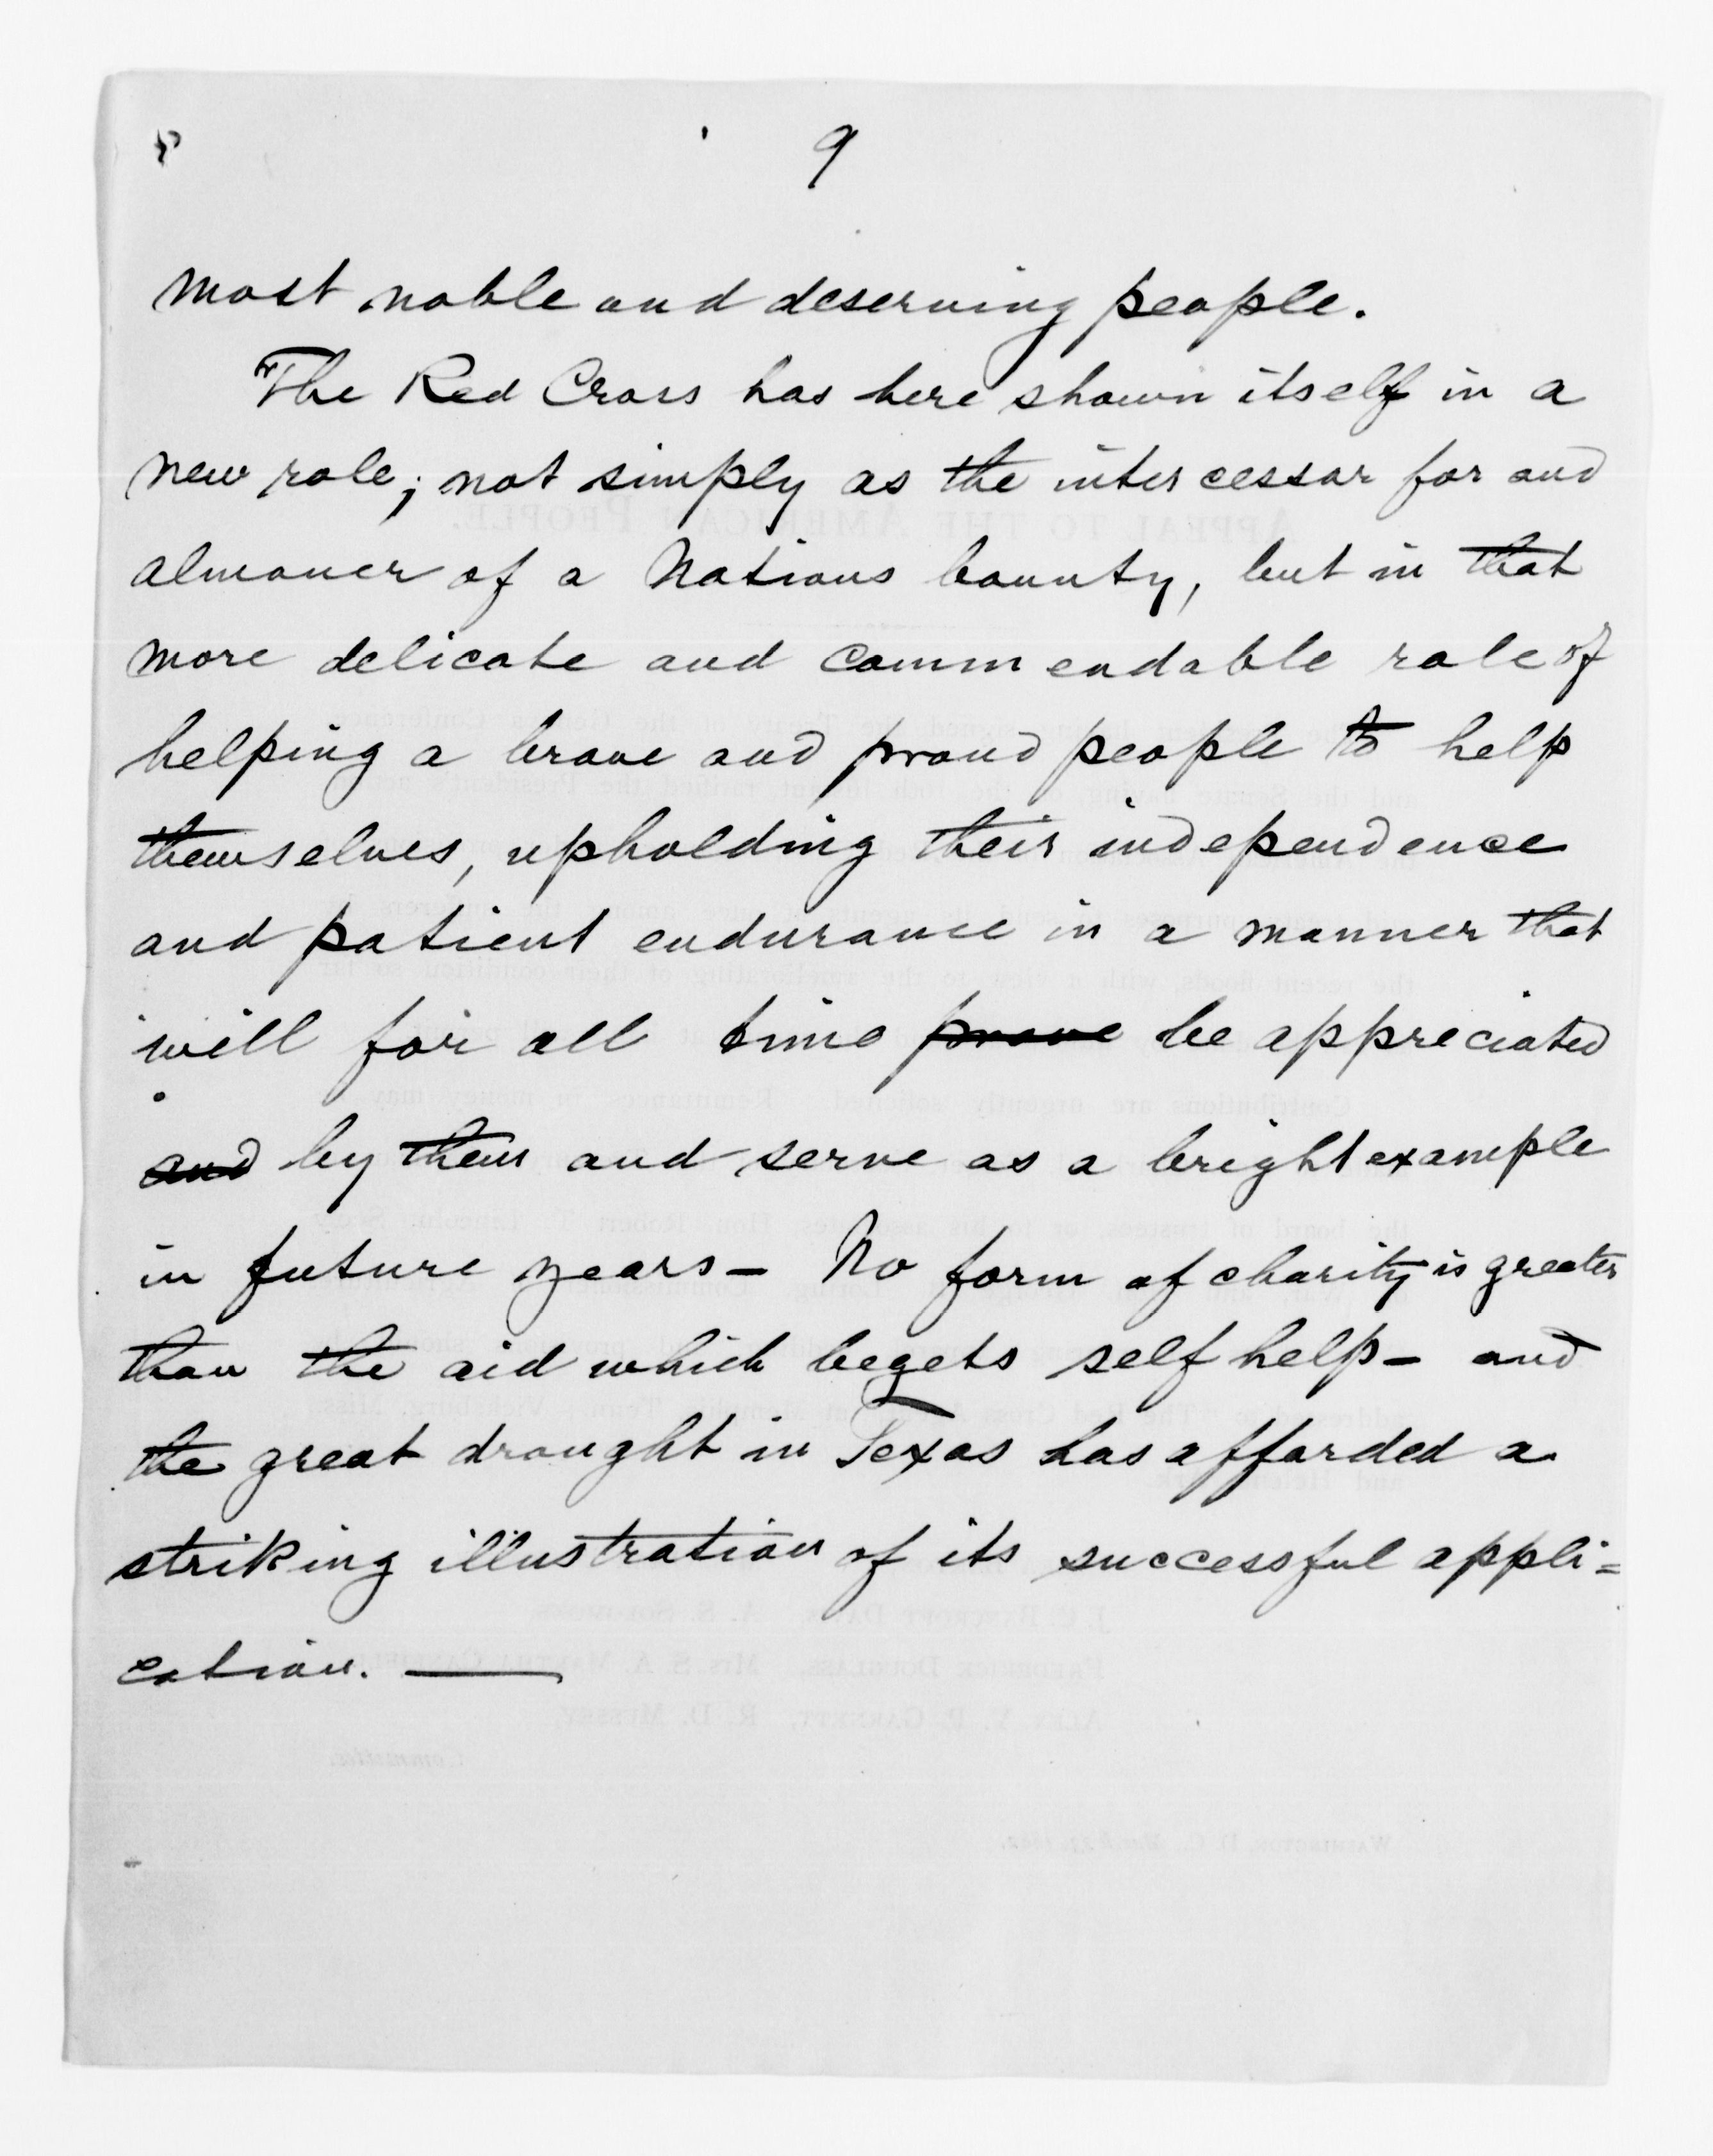 9
most noble and deserving people.
The Red Cross has here shown itself in a
new role; not simply as the intercessor for and
almoner of a Nations bounty, but in that
more delicate and commendable role of
helping a brave and proud people to help
themselves, upholding their independence
and patient endurance in a manner that
will for all time prove be appreciated
and by them and serve as a bright example
in future years - No form of charity is greater
than the aid which begets self help - and
the great drought in Texas has afforded a
striking illustration of its successful appli=
cation. —